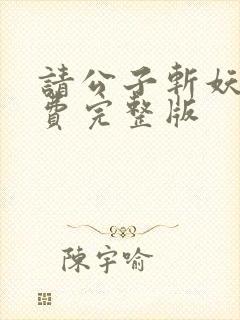 請公子斬妖
費完整版
陳宇喻